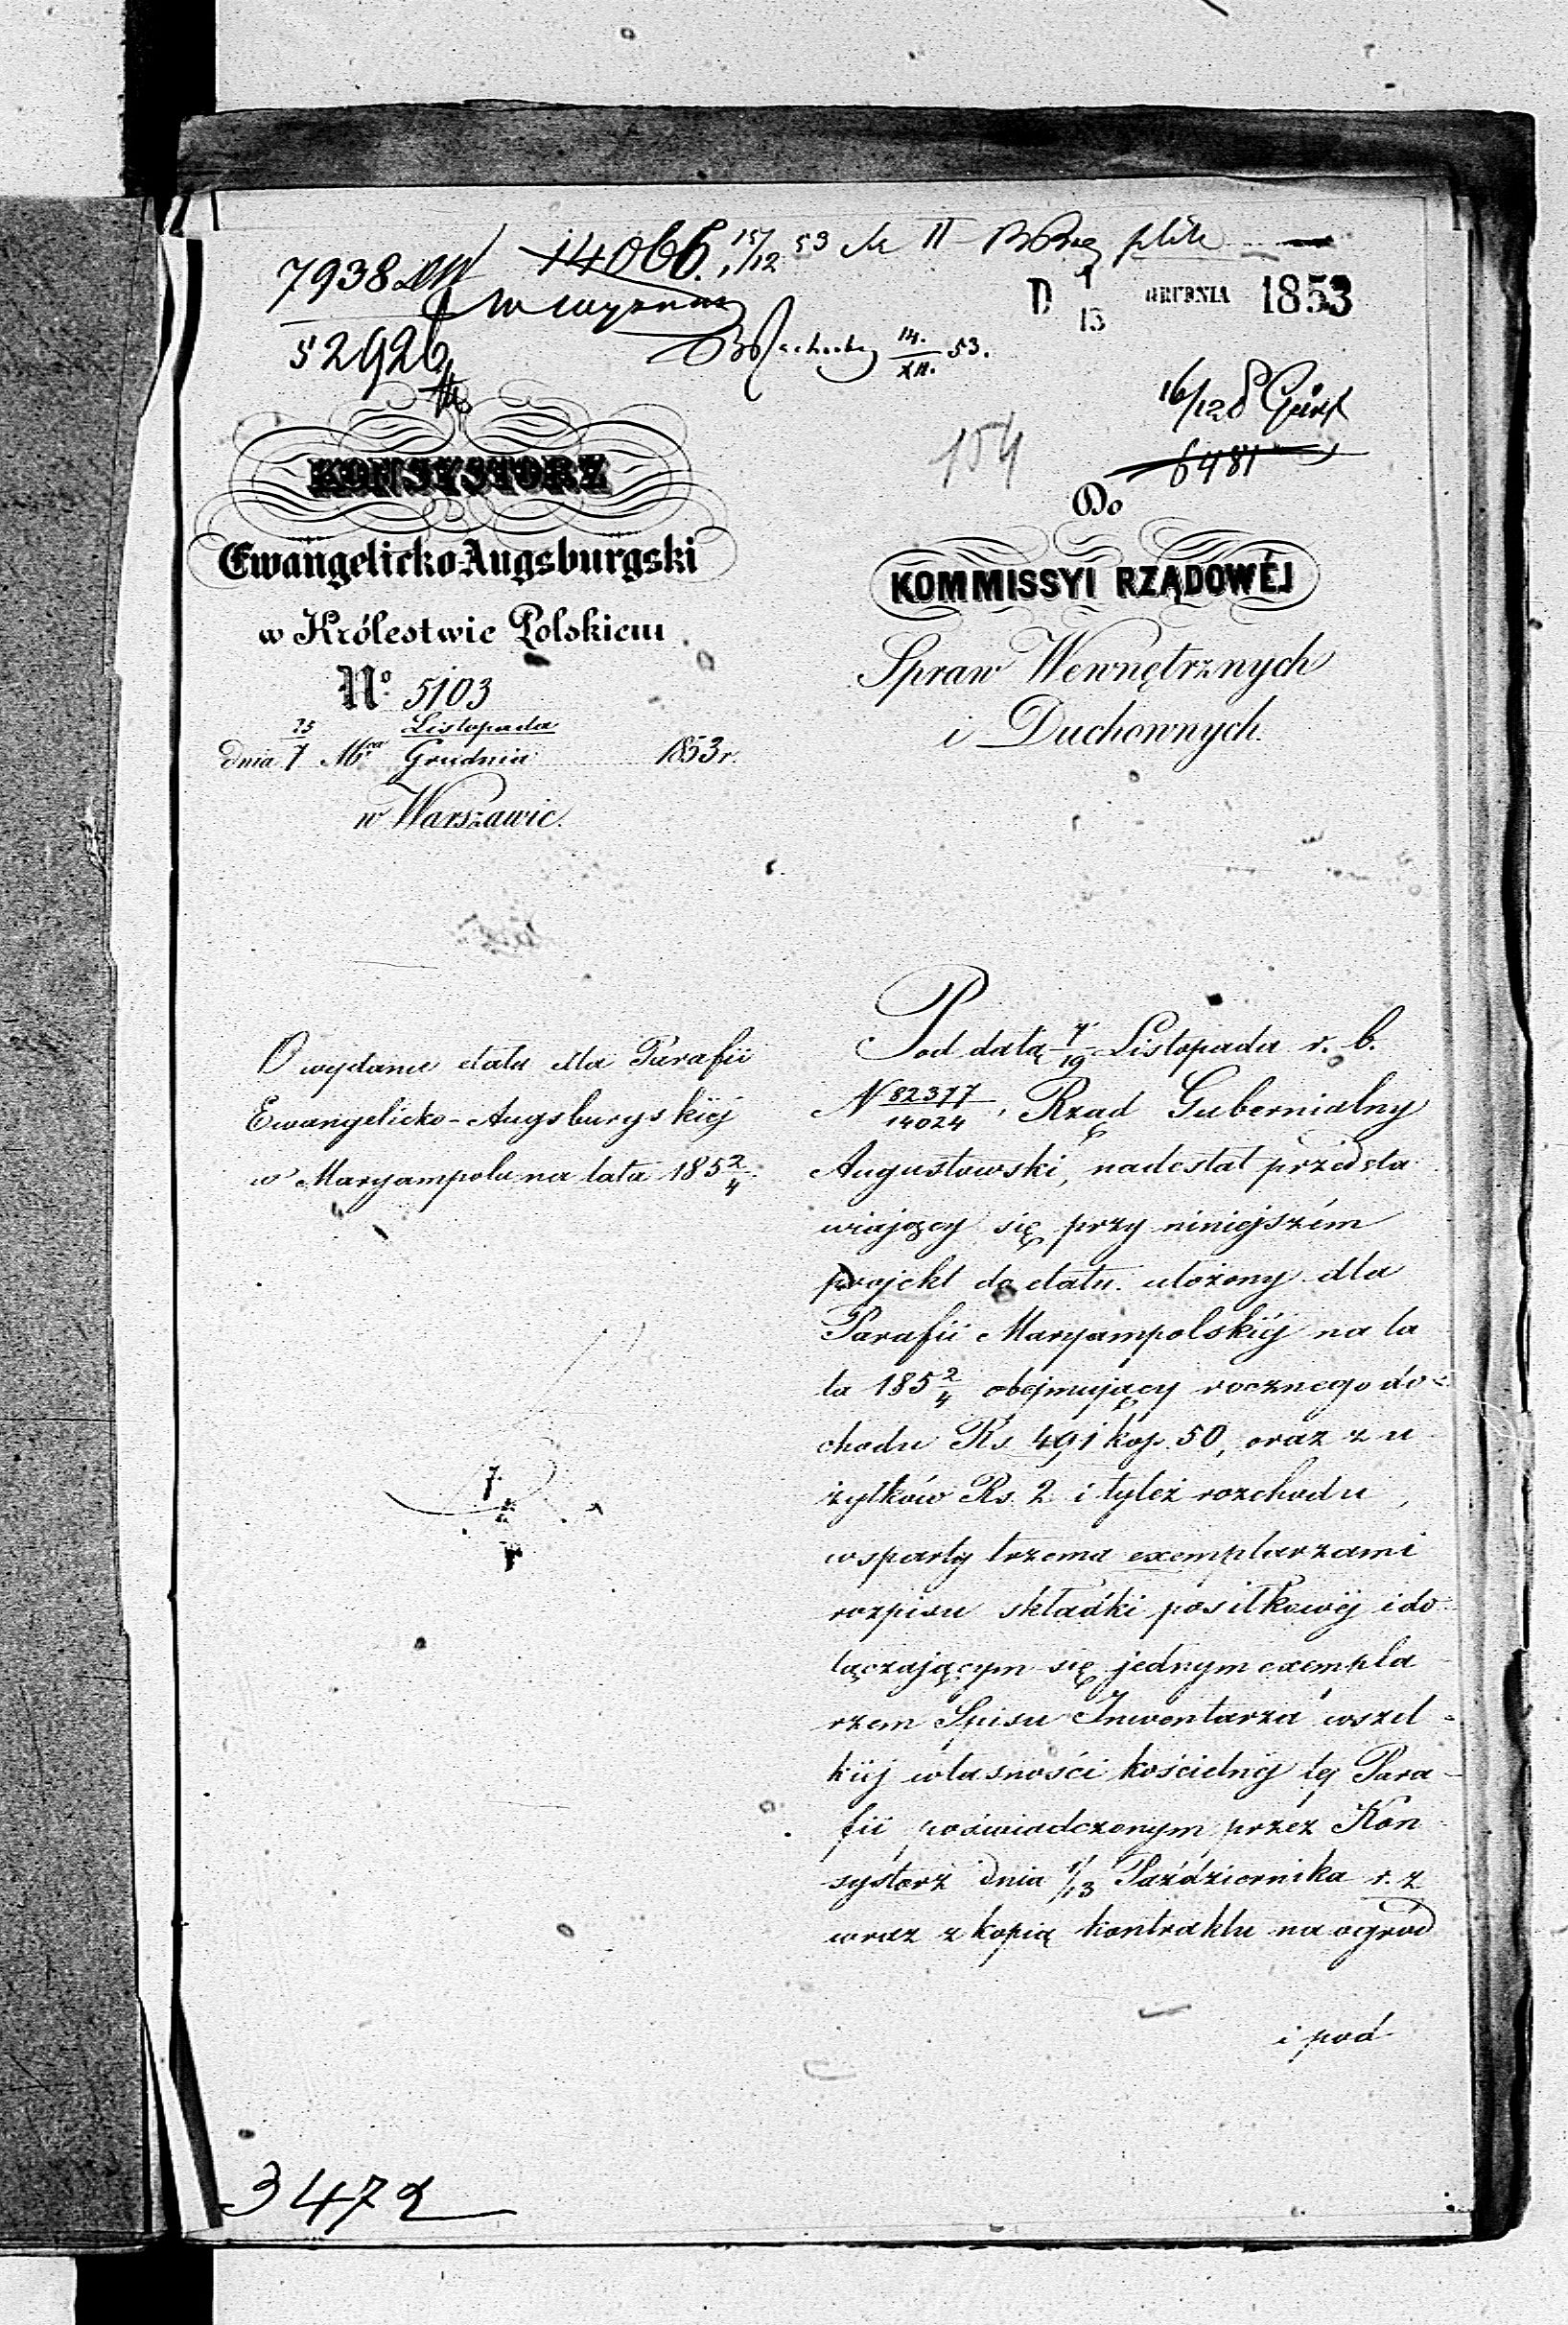 7938
52926
14066. 15/12 53 II
D 1/13 GRUDNIA 1853
14./XII. 53.
16/12
154
6481
KONSYSTORZ
Ewangelicko-Augsburgski
w Królestwie Polskiem
No 5103
25 Listopada
dnia 7 Mca Grudnia 1853 r.
w Warszawie.
Do
KOMMISSYI RZĄDOWÉJ
Spraw Wewnętrznych
i Duchownych.
O wydanie etatu dla Parafii
Ewangelicko-Augsburgskiej
w Maryampolu na lata 185 2/4.
Pod datą 7/19 Listopada r. b.
N 82377/14024, Rząd Gubernialny
Augustowski, nadesłał przedsta
wiający się przy niniejszém
projekt do etatu ułożony dla
Parafii Maryampolskiéj na la
ta 185 2/4 obejmujący rocznego do=
chodu Rs 491 kop. 50, oraz z u
żytków Rs. 2 i tyleż rozchodu,
wsparty trzema exemplarzami
rozpisu składki posiłkowéj i do
łączającym się jednym exempla
rzem Spisu Inwentarza wszel=
kiéj własności kościelnéj téj Para-
fii poświadczonym przez Kon
systorz dnia 1/13 Października r. z
wraz z kopią kontraktu na ogród
i pod
3472